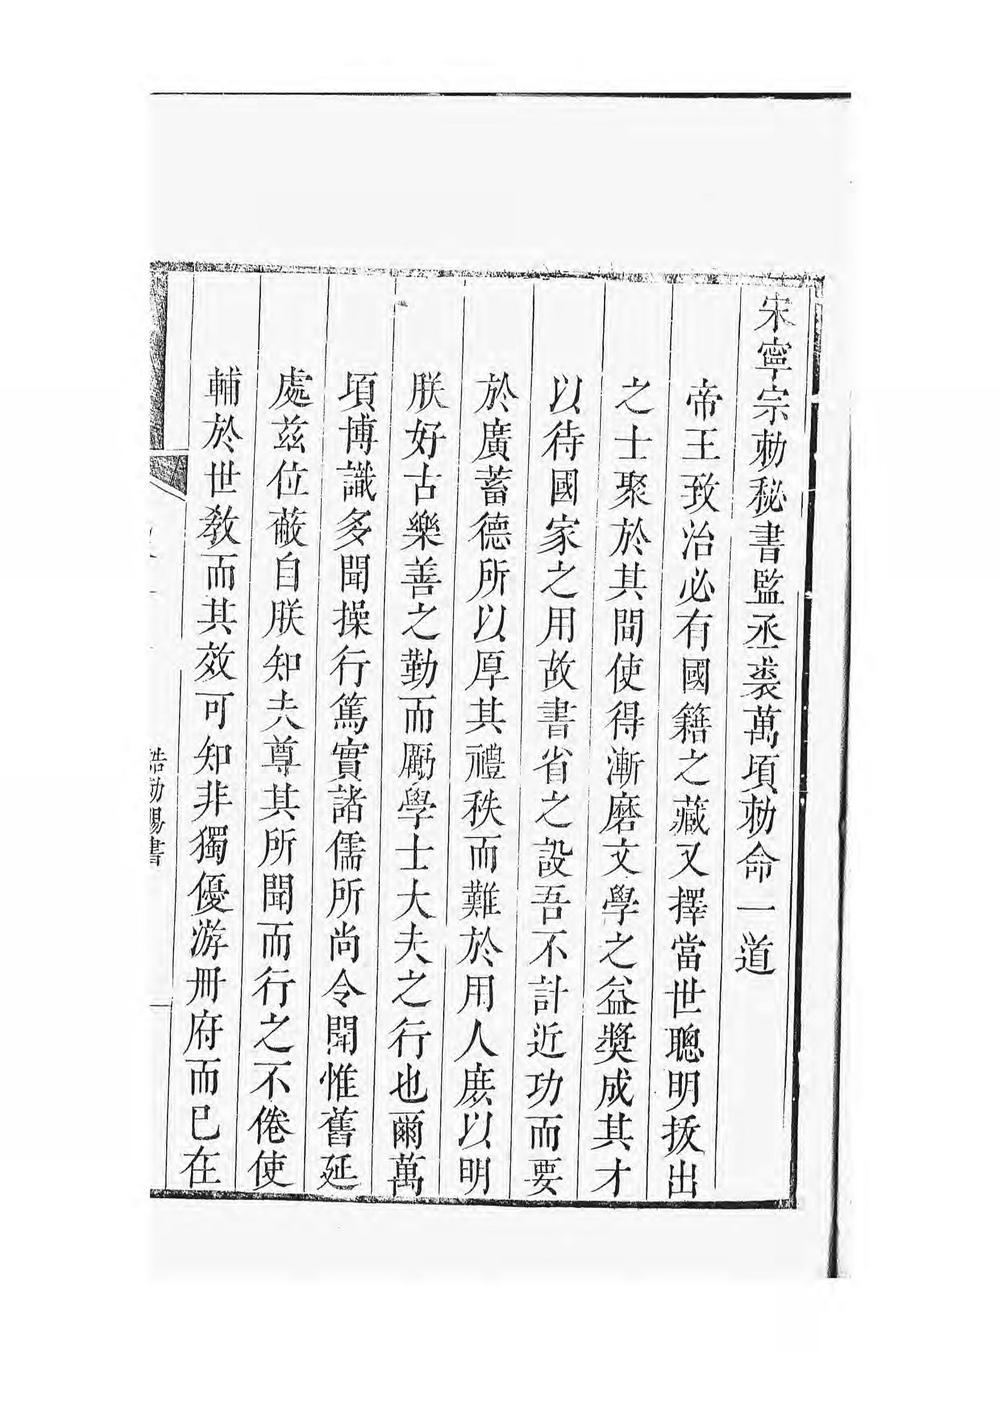 宋寧宗勅秘書監丞裘萬頃勅命一道
帝王致治必有國籍之藏又擇當世聰明拔出
之士聚於其間使得漸磨文學之益獎成其才
以待國家之用故書省之設吾不計近功而要
於廣蓄德所以厚其禮秩而難於用人庻以明
朕好古樂善之勤而厲學士大夫之行也爾萬
頃博識多聞操行篤實諸儒所尚令聞惟舊延
處兹位蔽自朕知夫尊其所聞而行之不倦使
輔於世敎而其效可知非獨優游冊府而已在
誥勅賜書